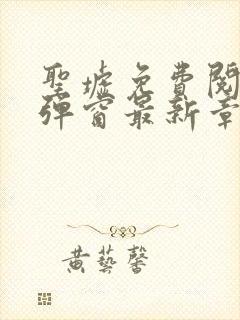 聖墟免費閱
彈窗最新章
黃藝馨